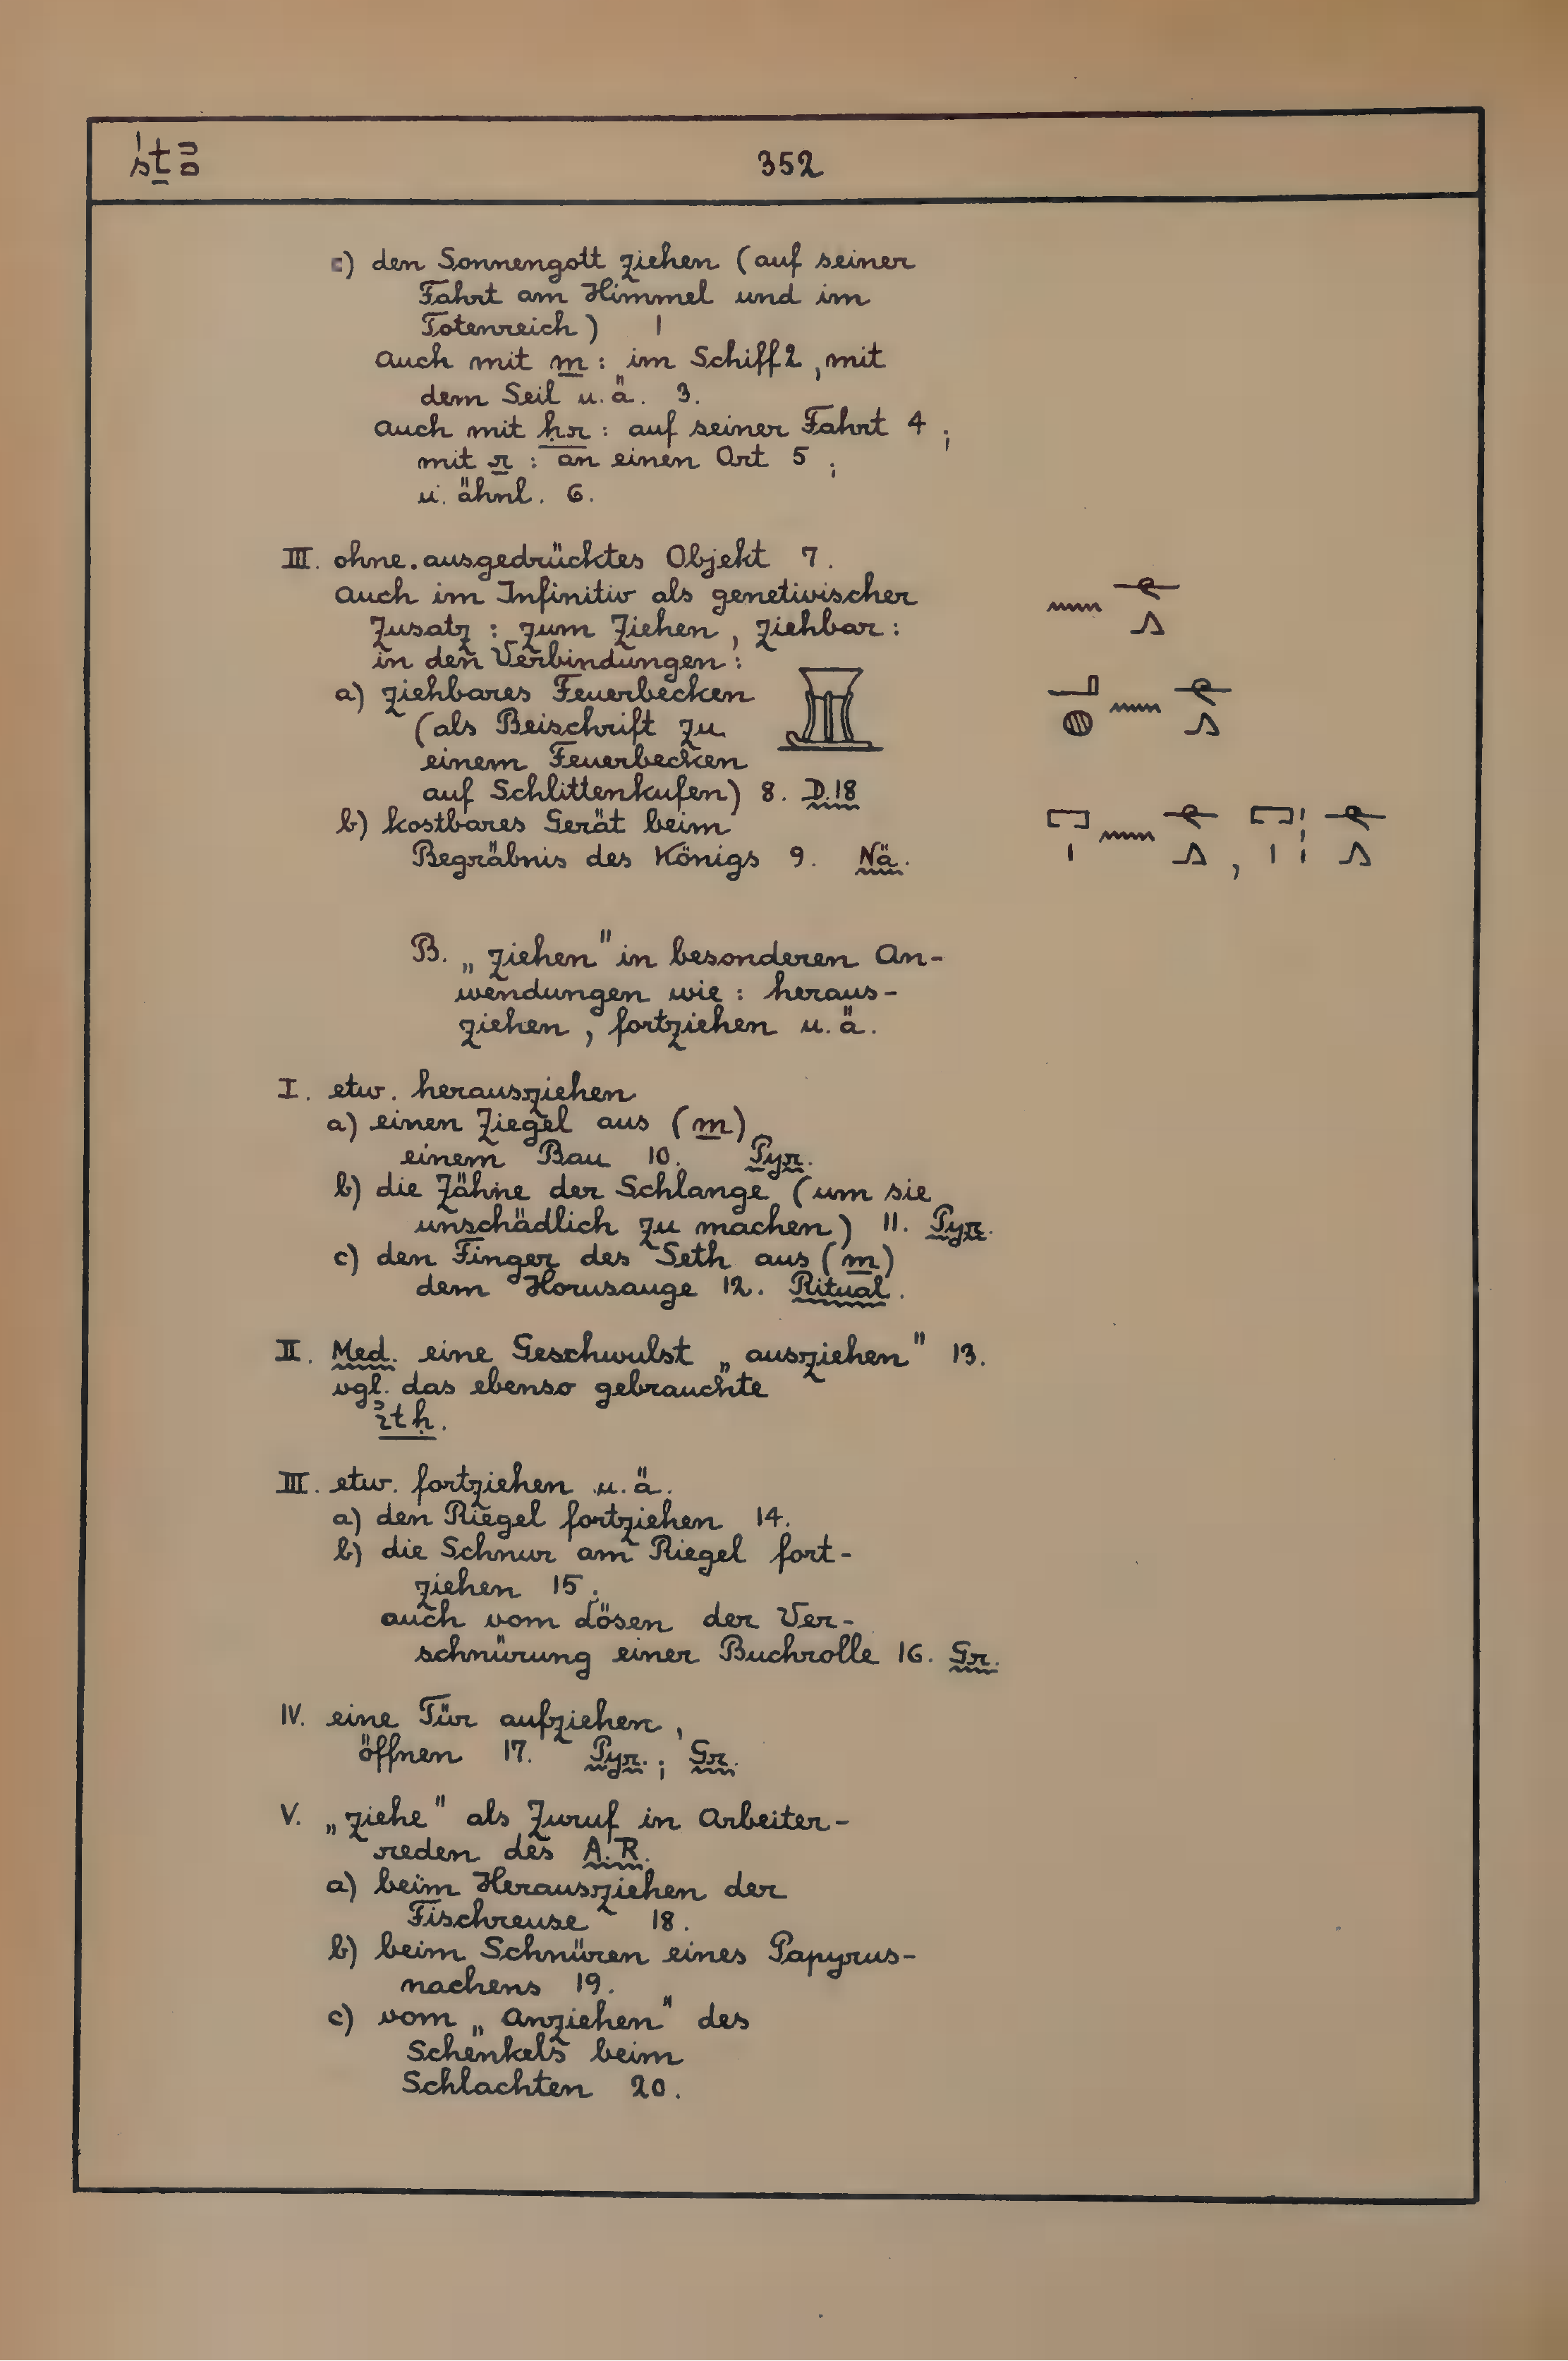 śṯꜣ
352
c) den Sonnengott ziehen (auf seiner
Fahrt am Himmel und im
Totenreich) 1
auch mit m: im Schiff 2, mit
dem Seil u.ä. 3.
auch mit ḥr: auf seiner Fahrt 4;
mit r: an einen Ort 5;
u. ähnl. 6.
III. ohne ausgedrücktes Objekt 7.
auch im Infinitiv als genetivischer
Zusatz: zum Ziehen, ziehbar:
in den Verbindungen:
a) ziehbares Feuerbecken
(als Beischrift zu
einem Feuerbecken
auf Schlittenkufen) 8. D.18
b) kostbares Gerät beim
Begräbnis des Königs 9. Nä.
B. „ziehen" in besonderen An-
wendungen wie: heraus-
ziehen, fortziehen u.ä.
I. etw. herausziehen
a) einen Ziegel aus (m)
einem Bau 10. Pyr.
b) die Zähne der Schlange (um sie
unschädlich zu machen) 11. Pyr.
c) den Finger des Seth aus (m)
dem Horusauge 12. Ritual.
II. Med. eine Geschwulst „ausziehen" 13.
vgl. das ebenso gebrauchte
ꞽtḥ.
III. etw. fortziehen u.ä.
a) den Riegel fortziehen 14.
b) die Schnur am Riegel fort-
ziehen 15;
auch vom Lösen der Ver-
schnürung einer Buchrolle 16. Gr.
IV. eine Tür aufziehen,
öffnen 17. Pyr.; Gr.
V. „ziehe" als Zuruf in Arbeiter-
reden des A.R.
a) beim Herausziehen der
Fischreuse 18.
b) beim Schnüren eines Papyrus-
nachens 19.
c) vom „Anziehen" des
Schenkels beim
Schlachten 20.